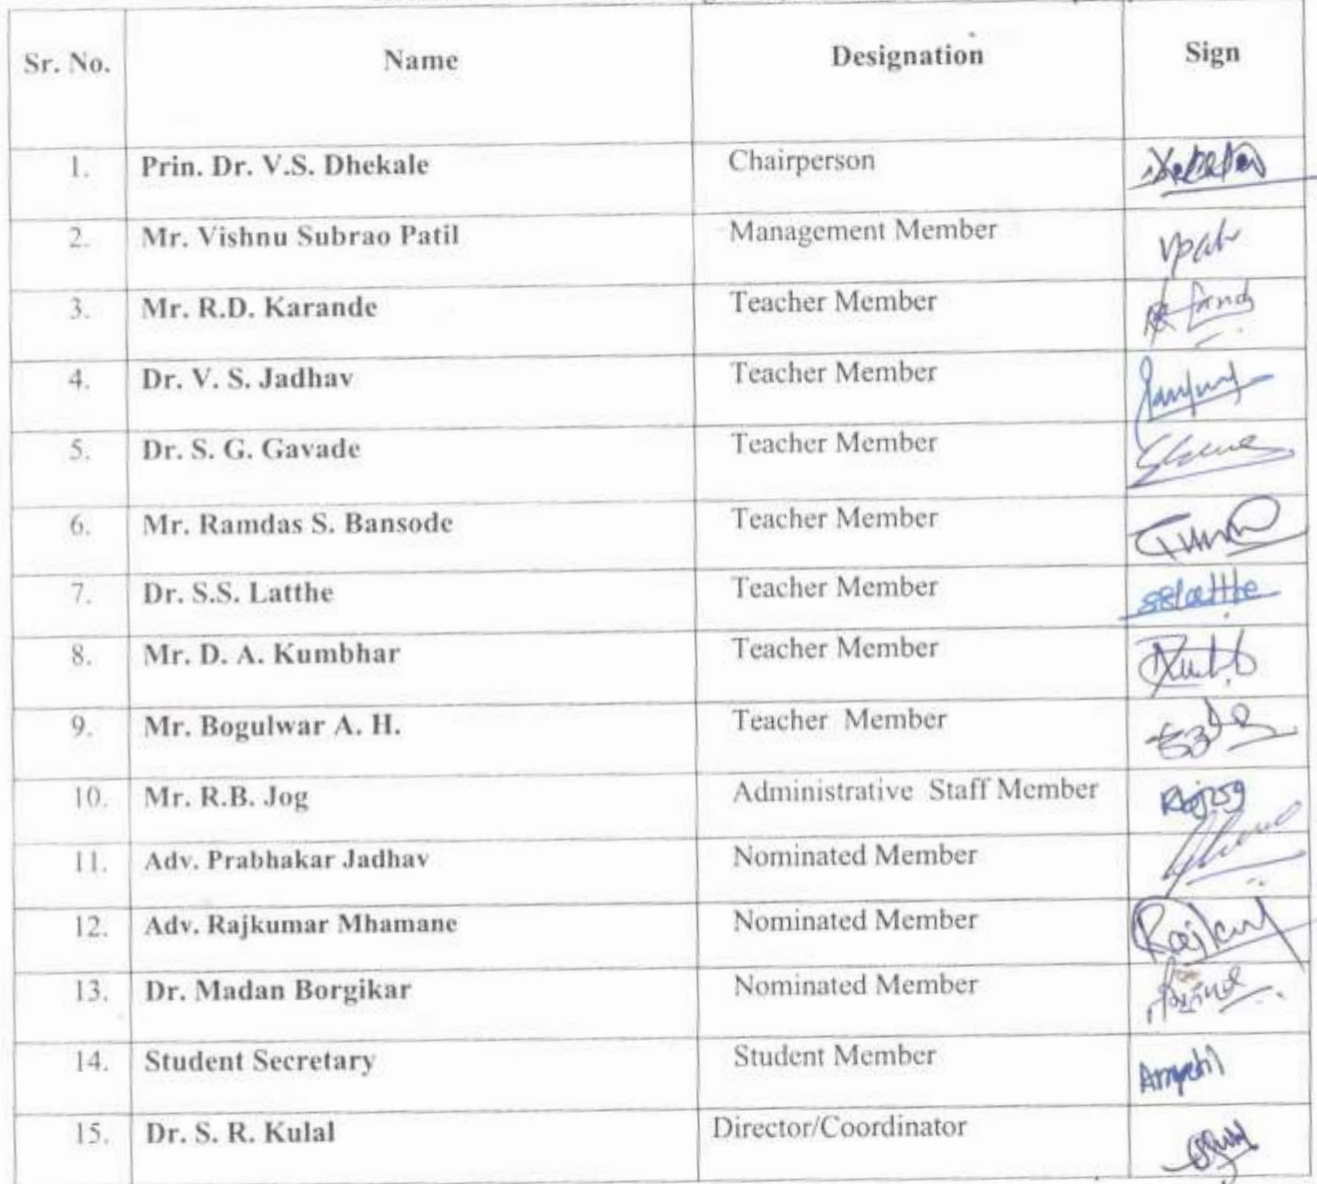 Sr. No. Name Designation Sign
1. Prin. Dr. V.S. Dhekale Chairperson
2. Mr. Vishnu Subrao Patil Management Member
3. Mr. R.D. Karande Teacher Member
4. Dr. V. S. Jadhav Teacher Member
5. Dr. S. G. Gavade Teacher Member
6. Mr. Ramdas S. Bansode Teacher Member
7. Dr. S.S. Latthe Teacher Member sslatthe
8. Mr. D. A. Kumbhar Teacher Member
9. Mr. Bogulwar A. H. Teacher Member
10. Mr. R.B. Jog Administrative Staff Member
11. Adv. Prabhakar Jadhav Nominated Member
12. Adv. Rajkumar Mhamane Nominated Member
13. Dr. Madan Borgikar Nominated Member
14. Student Secretary Student Member
15. Dr. S. R. Kulal Director/Coordinator